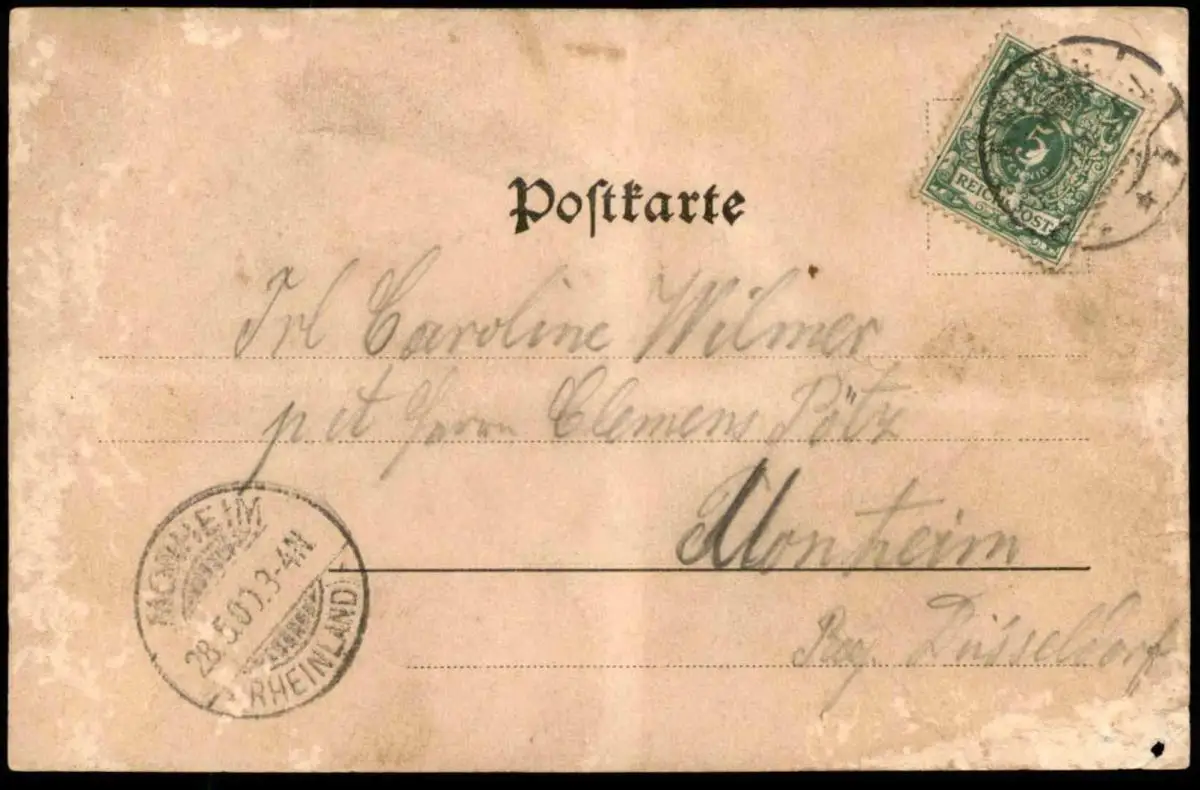 5
REICHSPOST
Postkarte
Frl Caroline Wilmer
p. ad. Herrn Clemens Pötz
Monheim
Bez. Düsseldorf
MONHEIM
28.5.00.3-4N
(RHEINLAND)